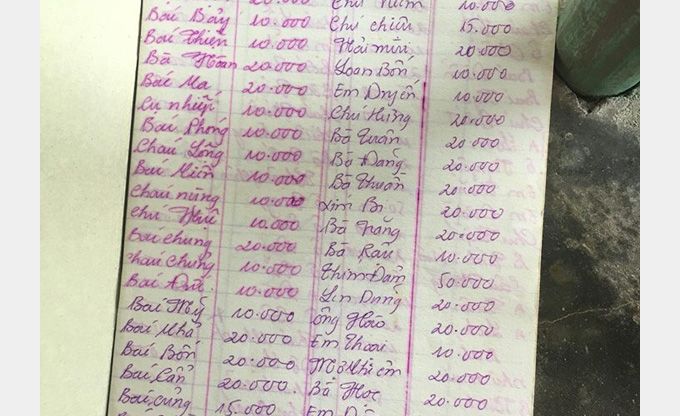 20.000 Chú 10.000
Bác Bảy 10.000 Chú chiến 15.000
Bác Thiện 10.000 20.000
Bà Hoan 20.000 Loan Bốn 10.000
Bác Ma 20.000 Em Duyên 10.000
Cụ nhiếp 10.000 Chú Hưng 20.000
Bác Phong 10.000 Bà Tuân 20.000
Cháu Long 10.000 Bà Đang 20.000
Bác Miên 10.000 Bà Thuần 20.000
Cháu nùng 10.000 Bi 20.000
Chú 10.000 Bà Năng 20.000
Bác Chung 20.000 Bà Rầu 10.000
Cháu Chung 10.000 Thím Đảm 50.000
Bác 10.000 Dung 20.000
Bác Mỹ 10.000 ông Hảo 20.000
Bác Nhả 20.000 Em Thoai 10.000
Bác Bốn 20.000 20.000
Bác Cẩn 20.000 Bà Học 20.000
Bác Cúng 15.000 Em